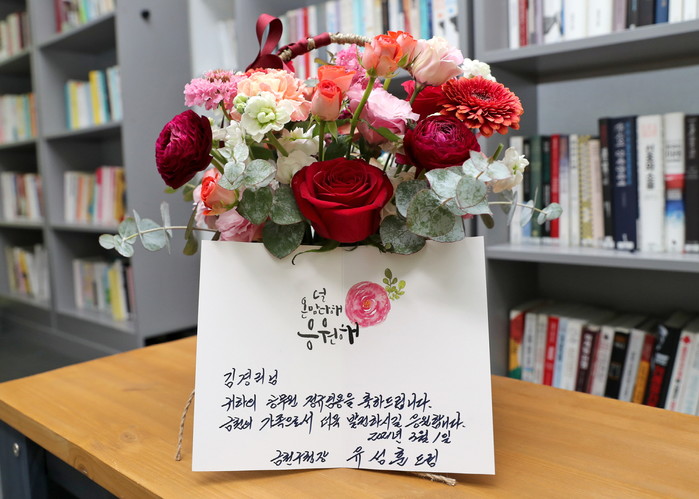 널
온맘다해
응원해
김경리님
귀하의 공무원 정규임용을 축하드립니다.
금천의 가족으로서 더욱 발전하시길 응원합니다.
2021년 3월 1일
금천구청장 유성훈 드림